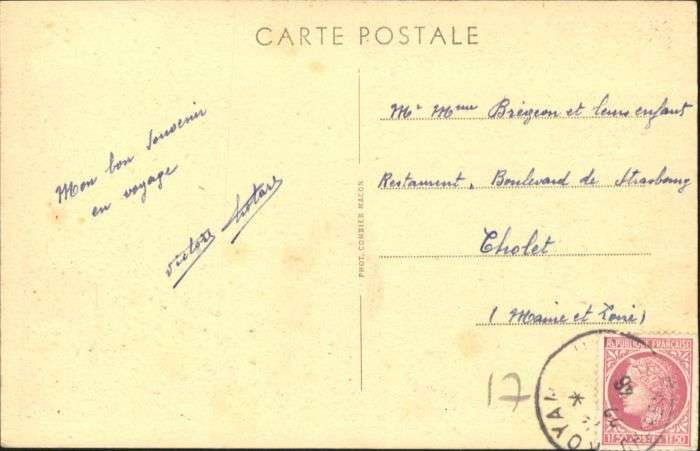 CARTE POSTALE
Mon bon souvenir
en voyage
Victor
Mr Mme Brégeon et leurs enfant
Restaurant, Boulevard de Strasbourg
Cholet
(Maine et Loire)
PHOT. COMBIER MACON
17
ROYAN
REPUBLIQUE FRANÇAISE
1F50